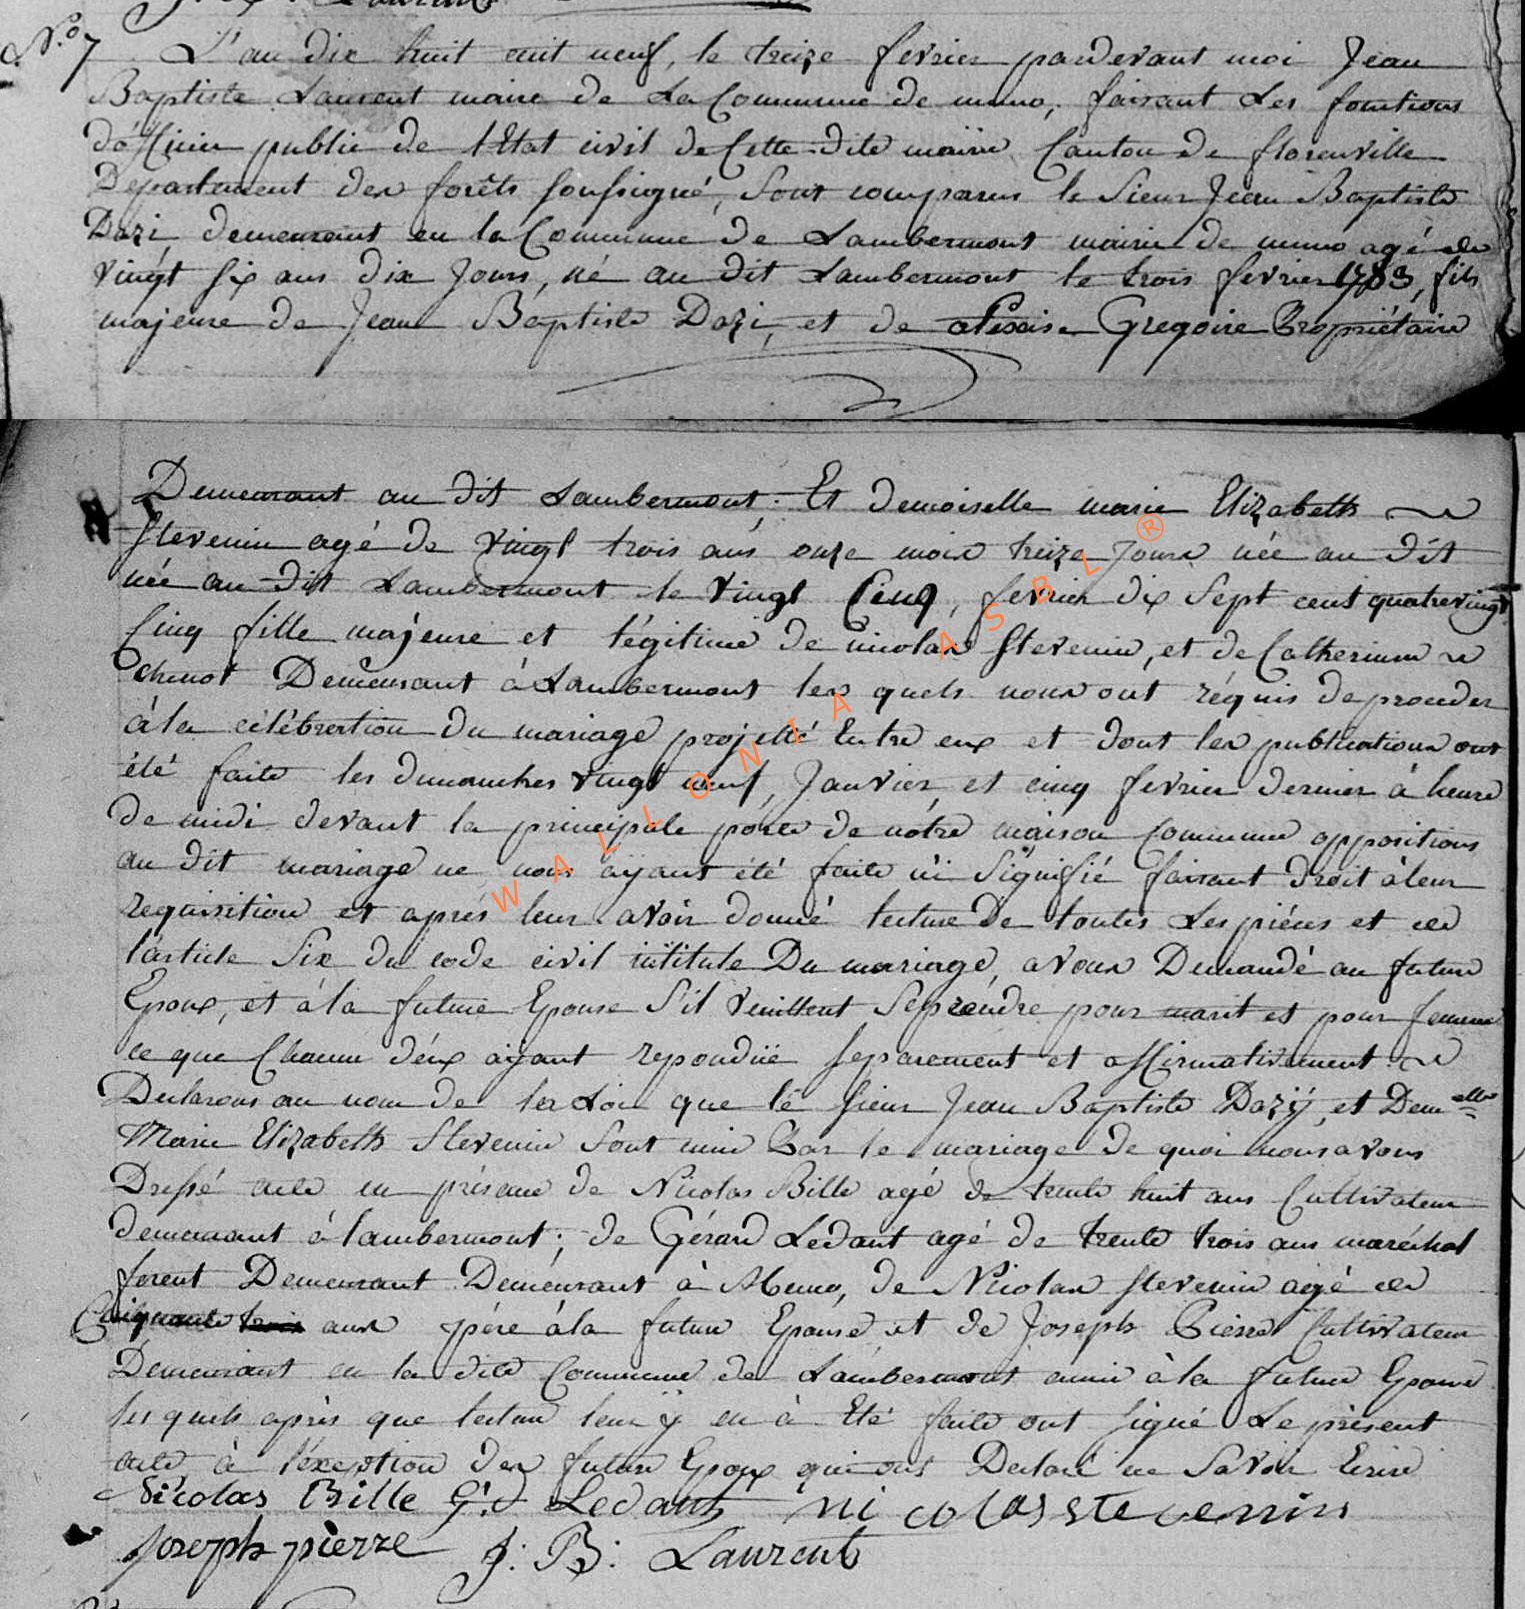 N.o 7 L'an dix huit cent neuf, le treize fevrier pardevant moi Jean
Baptiste Laurent maire de La Commune de muno, faisant Les fonctions
d'officier public de l'Etat civil de Cette dite mairie Canton de florenville
Departement des forêts soussigné, Sont comparus le Sieur Jean Baptiste
Dazi demeurant en la Commune de Lambermont mairie de muno agé de
vingt six ans dix Jours, né au dit Lambermont le trois fevrier 1783, fils
majeure de Jean Baptiste Dazi, et de alexise Gregoire Propriétaire
Demeurant au dit Lambermont; Et demoiselle marie Elizabeth
Stevenin agé de vingt trois ans onze mois treize Jours née au dit
née au dit Lambermont le vingt Cinq, fevrier dix Sept cent quatrevingt
Cinq fille majeure et légitime de nicolas Stevenin, et de Catherinne
chenot Demeurant à Lambermont les quels nous ont réquis de proceder
à la célébration du mariage projetté Entre eux et dont les publications ont
été faite les dimanches vingt neuf, Janvier, et cinq fevrier dernier à heure
de midi devant la principale porte de nôtre maison Commune oppositions
au dit mariage ne nous ayant été faite ni Signifié faisant droit à leur
requisition et aprés leur avoir donné lecture De toutes Les piéces et de
l'article Six du code civil intitule Du mariage, avons Demandé au futur
Epoux, et à la future Epouse S'il veuillent Se prendre pour marit et pour femme
ce que Chacun d'éux ayant repondüe separement et affirmativement
Declarons au nom de la Loi que le sieur Jean Baptiste Dazÿ, et Demelle
Marie Elizabeth Stevenin Sont unie Par le mariage de quoi nous avons
Dressé acte en présence de Nicolas Bille agé de trente huit ans Cultivateur
demeurant à lambermont; de Gérard Ledant agé de trente trois ans maréchal
ferent Demeurant Demeurant à Muno, de Nicolas Stevenin agé de
Cinquante trois ans pére à la future Epouse et de Joseph Pierre Cultivateur
Demeurant en la dite Commune de Lambermont amie à la future Epouse
les quels après que lecture leur ÿ en à Eté faite ont signé Le présent
acte à l'éxception des futur Epoux qui ont Declaré ne Savoir Ecrire
Nicolas Bille G.d Ledant nicolas stevenin
Joseph pierre J: B: Laurent
WALLONIA ASBL ®